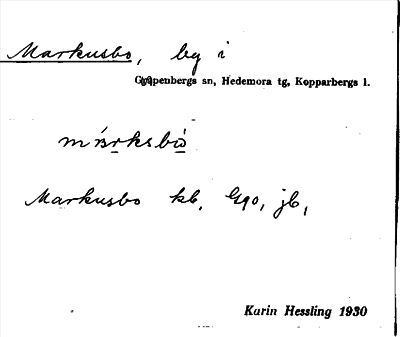 Markusbo, by i
Garpenbergs sn, Hedemora tg, Kopparbergs l.
Markusbo kb, jb,
Karin Hessling 1930